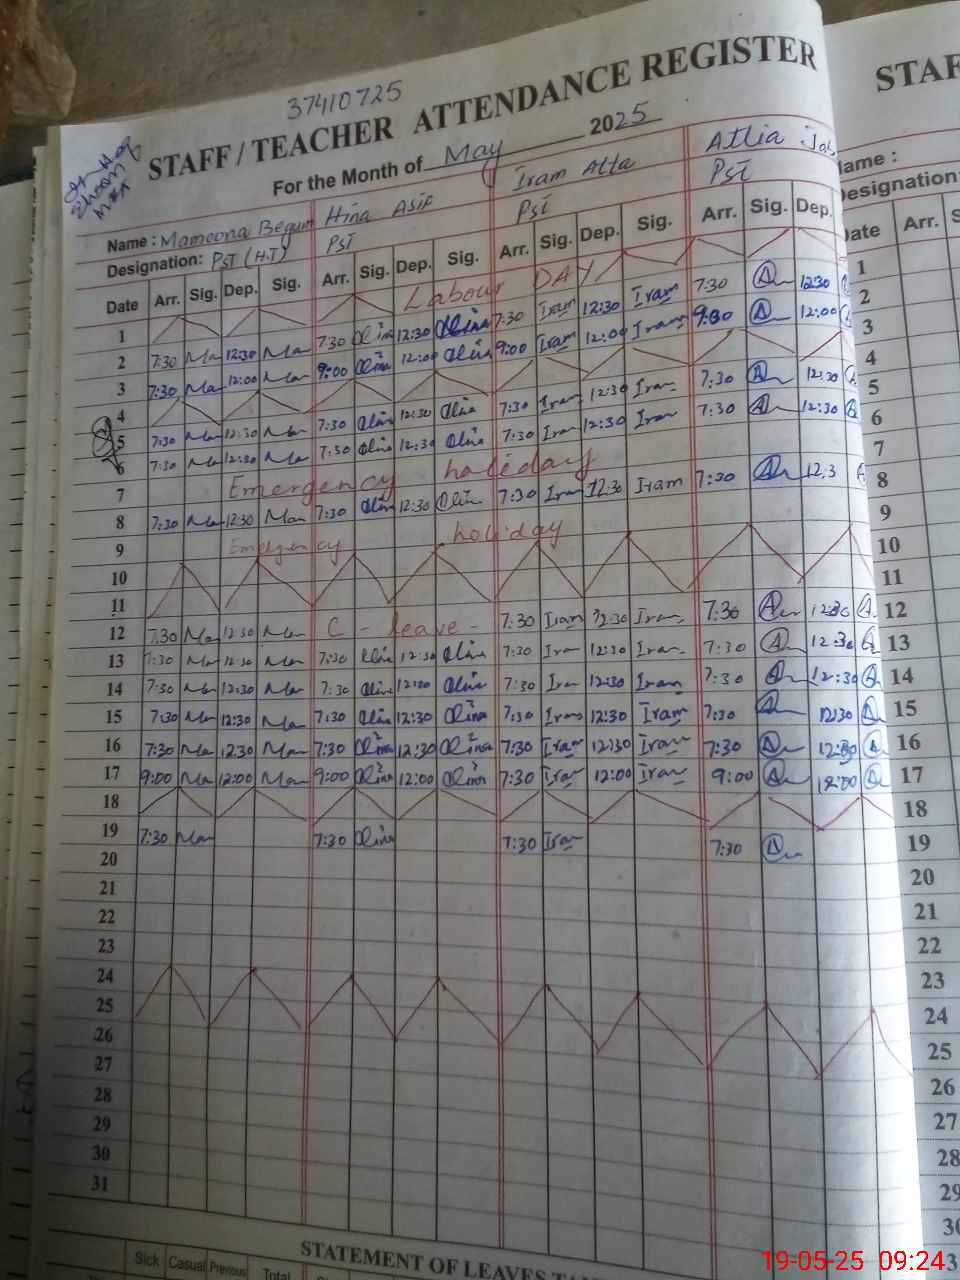 37410725
STAFF / TEACHER ATTENDANCE REGISTER
For the Month of May 2025
Name : Mamoona Begum Hina Asif Iram Atta Attia
Designation: PST (H.T) PST PST PST
Date Arr. Sig. Dep. Sig. Arr. Sig. Dep. Sig. Arr. Sig. Dep. Sig. Arr. Sig. Dep.
1 Labour DAY
2 7:30 Ma 12:30 Ma 7:30 Hina 12:30 Hina 7:30 Iram 12:30 Iram 7:30 12:30
3 7:30 Ma 12:00 Ma 9:00 Hina 12:00 Hina 9:00 Iram 12:00 Iram 9:30 12:00
4
5 7:30 Ma 12:30 Ma 7:30 Hina 12:30 Hina 7:30 Iram 12:30 Iram 7:30 12:30
6 7:30 Ma 12:30 Ma 7:30 Hina 12:30 Hina 7:30 Iram 12:30 Iram 7:30 12:30
7 Emergency holiday
8 7:30 Ma 12:30 Man 7:30 Hina 12:30 Hina 7:30 Iram 12:30 Iram 7:30 12:3
9 Emergency holiday
10
11
12 7:30 Ma 12:30 Ma C - leave - 7:30 Iram 12:30 Iram 7:30 12:30
13 7:30 Ma 12:30 Ma 7:30 Hina 12:30 Hina 7:30 Iram 12:30 Iram 7:30 12:30
14 7:30 Ma 12:30 Ma 7:30 Hina 12:00 Hina 7:30 Iram 12:30 Iram 7:30 12:30
15 7:30 Ma 12:30 Ma 7:30 Hina 12:30 Hina 7:30 Iram 12:30 Iram 7:30 12:30
16 7:30 Ma 12:30 Ma 7:30 Hina 12:30 Hina 7:30 Iram 12:30 Iram 7:30 12:30
17 9:00 Ma 12:00 Ma 9:00 Hina 12:00 Hina 7:30 Iram 12:00 Iram 9:00 12:00
18
19 7:30 Ma 7:30 Hina 7:30 Iram 7:30
20
21
22
23
24
25
26
27
28
29
30
31
STATEMENT OF LEAVES TA
Sick Casual Previous Total
STAF
Name :
Designation:
Date Arr. S
1
2
3
4
5
6
7
8
9
10
11
12
13
14
15
16
17
18
19
20
21
22
23
24
25
26
27
28
29
19-05-25 09:24